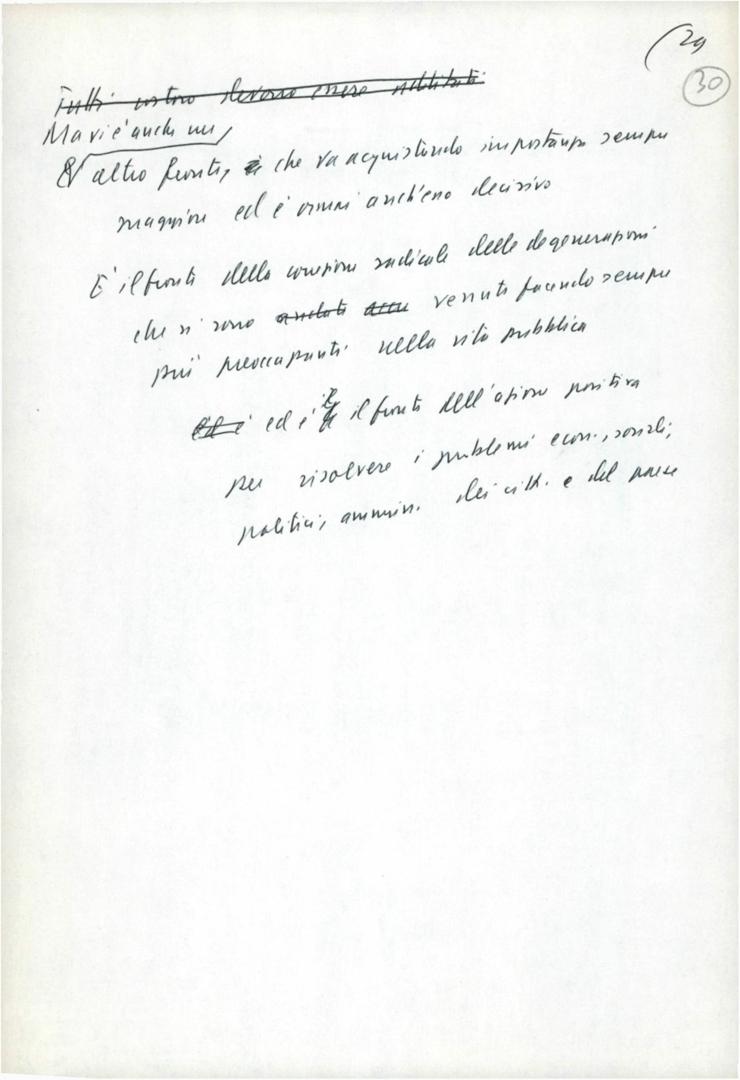 (29
30
Tutti costoro devono essere additati
Ma vi è anche un
altro fronte, che va acquistando importanza sempre
maggiore ed è ormai anch'esso decisivo
E' il fronte della correzione radicale delle degenerazioni
che si sono andate venute facendo sempre
più preoccupanti nella vita pubblica
ed è ed è il fronte dell'azione positiva
per risolvere i problemi econ., sociali,
politici, ammin. dei citt. e del paese